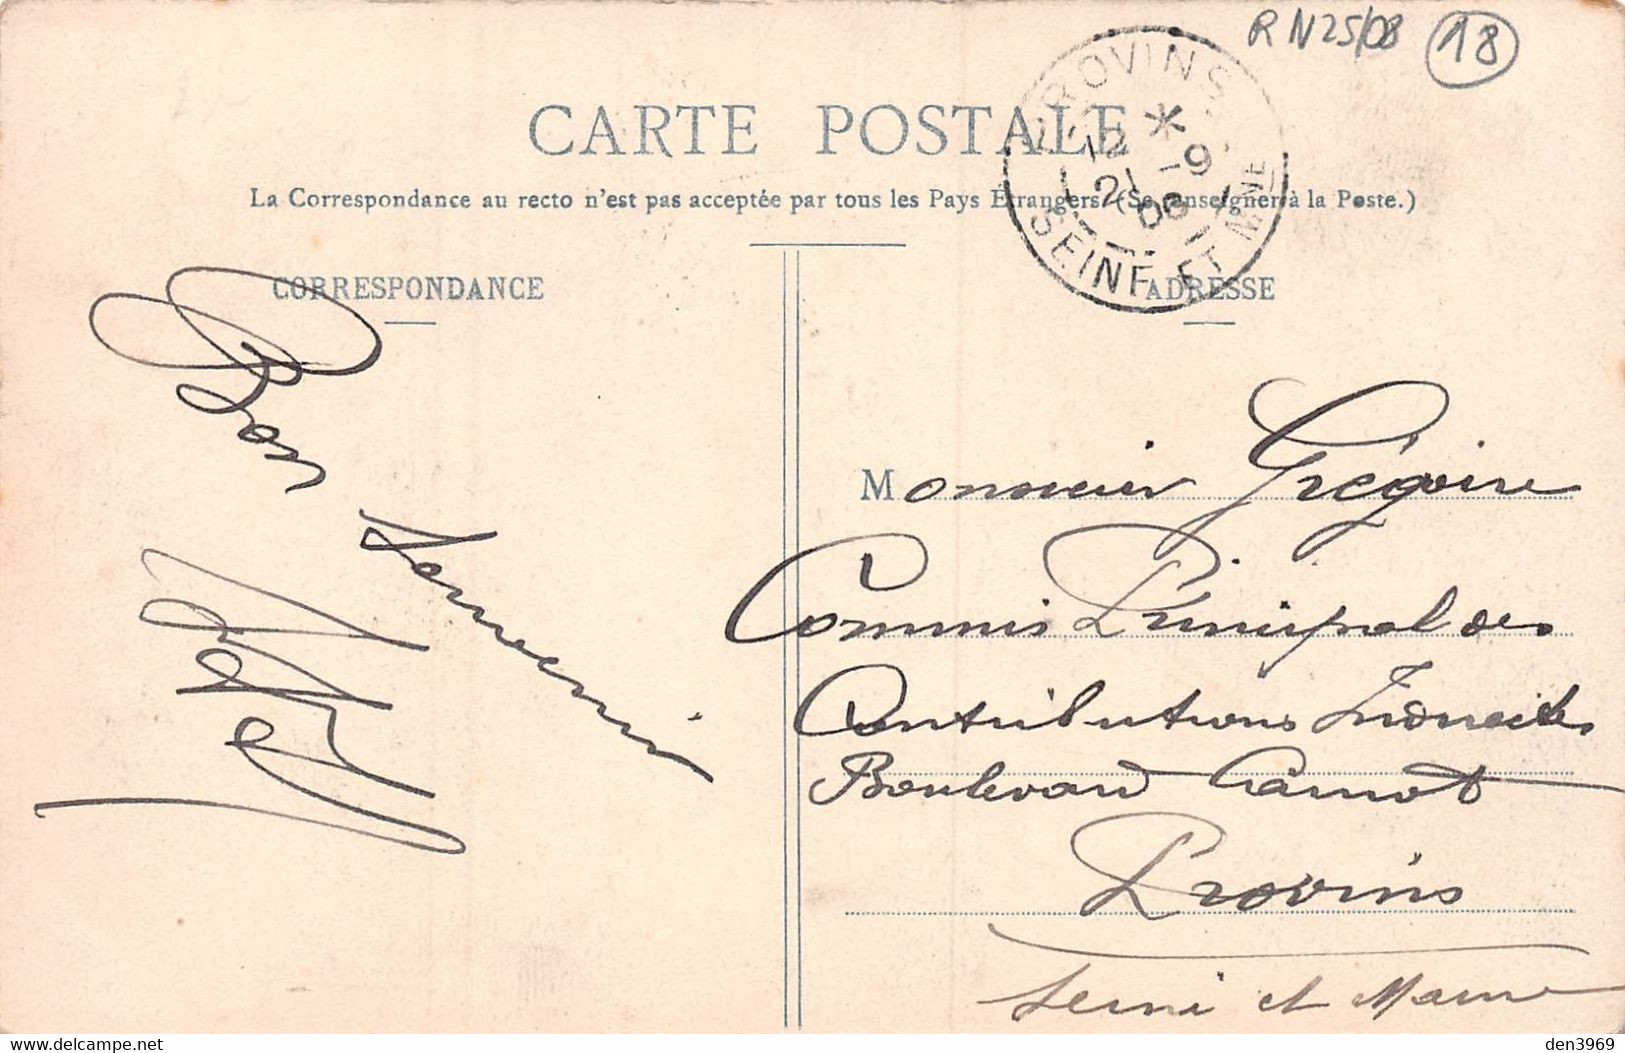 RN25/08 18
CARTE POSTALE
La Correspondance au recto n'est pas acceptée par tous les Pays Étrangers. (Se renseigner à la Poste.)
PROVINS
12 * 9
21 06
SEINE ET MNE
CORRESPONDANCE
Bon
souvenir
ADRESSE
Monsieur Grégoire
Commis Principal des
Contributions Indirectes
Boulevard Carnot
Provins
Seine et Marne
den3969